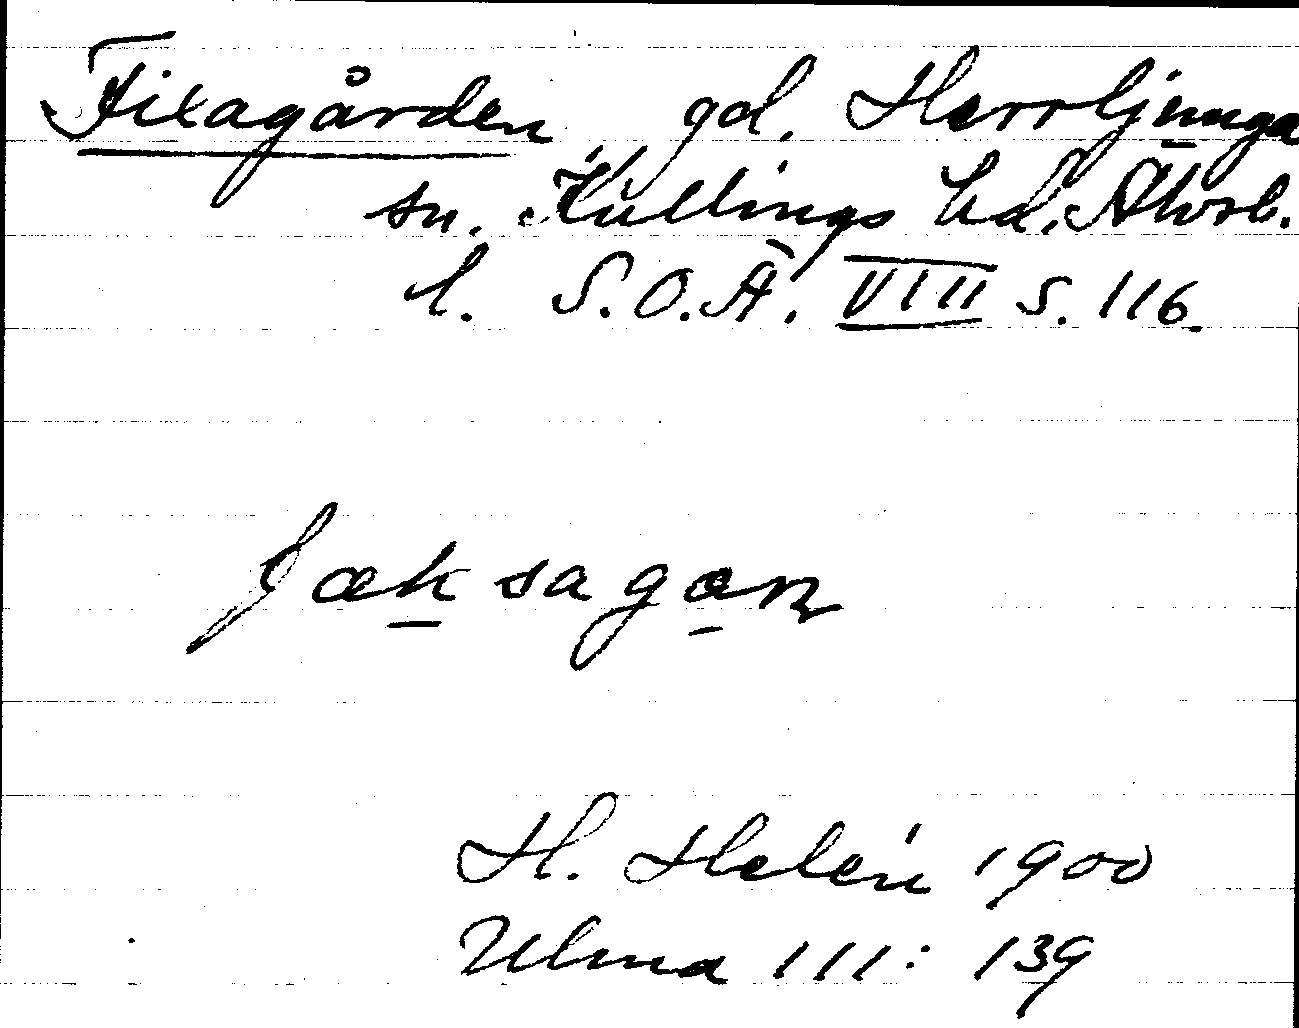 Fixagården gd. Herrljunga
sn. Kullings hd. Älvsb.
l. S.O.Ä. VIII s. 116.
H. Helén 1900
Ulma 111: 139